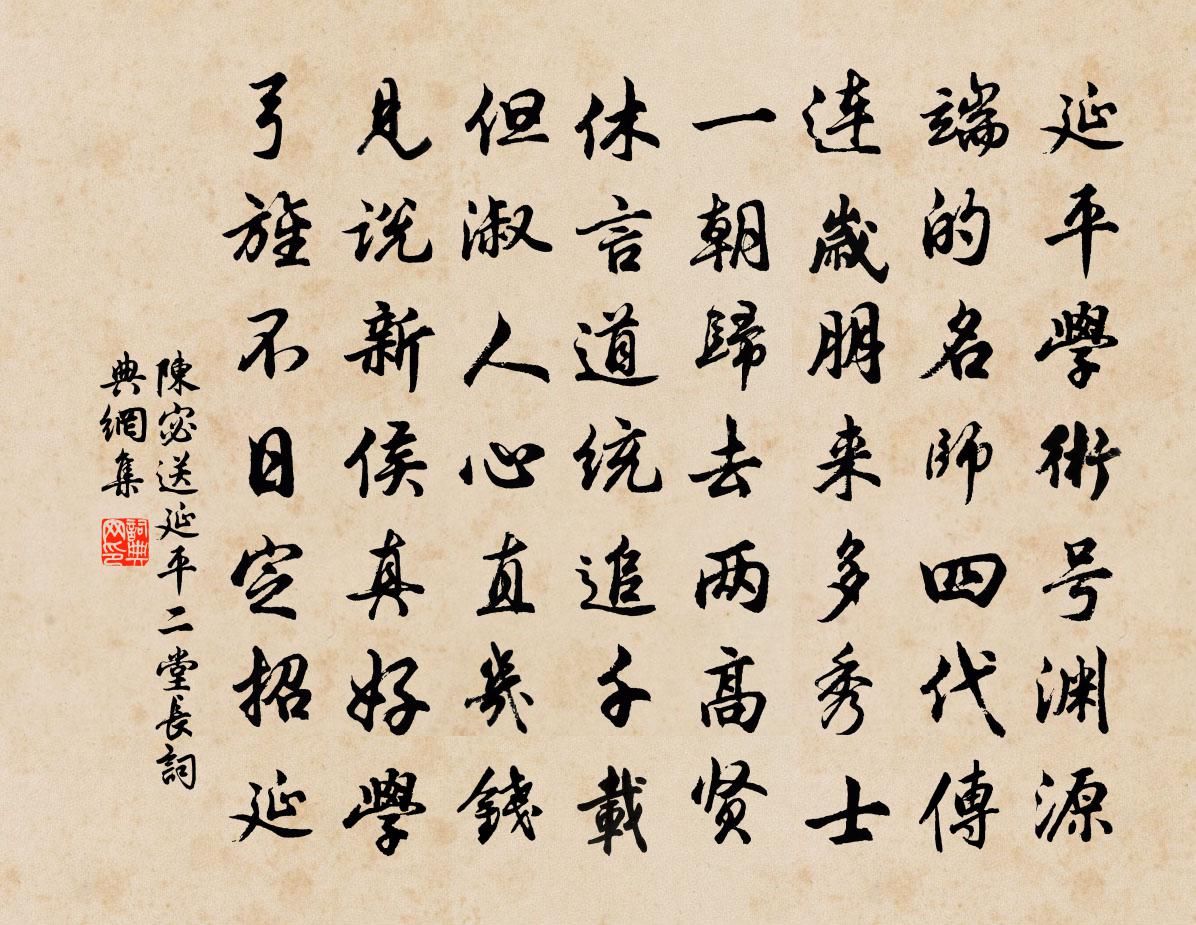 延平學術号渊源
端的名师四代傳
連嵗朋来多秀士
一朝歸去两高贤
休言道统追千載
但淑人心直幾錢
見说新侯真好學
弓旌不日定招延
陳宓送延平二堂長詞
典網集
詞典网印